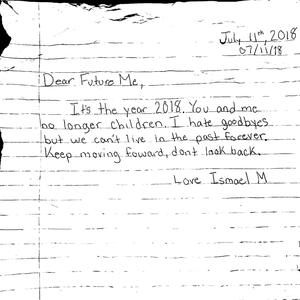 July 11th, 2018
07/11/18
Dear Future Me,
It's the year 2018. You and me
no longer children. I hate goodbyes
but we can't live in the past forever.
Keep moving foward, dont look back.
Love Ismael M